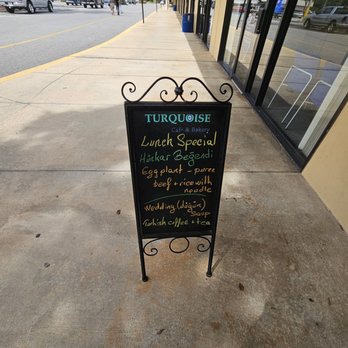 TURQUOISE
Cafe & Bakery
Lunch Special
Hünkar Beğendi
Eggplant - puree
beef + rice with
noodle
Wedding (düğün)
Soup
Turkish coffee + tea